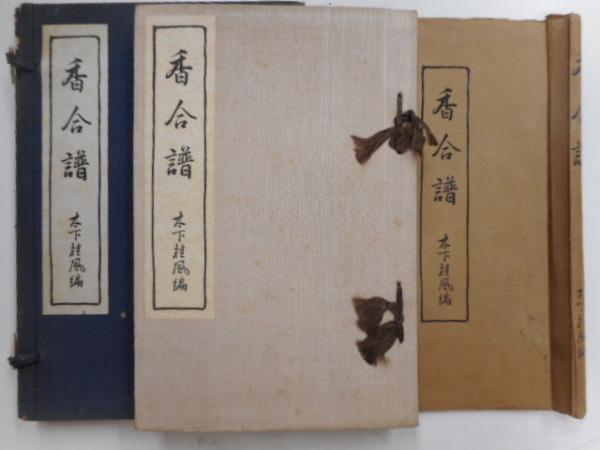 香合譜
木下桂風編
香合譜
木下桂風編
香合譜
木下桂風編